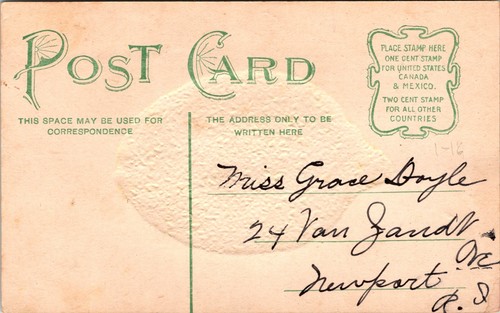 POST CARD
THIS SPACE MAY BE USED FOR
CORRESPONDENCE
THE ADDRESS ONLY TO BE
WRITTEN HERE
PLACE STAMP HERE
ONE CENT STAMP
FOR UNITED STATES
CANADA
& MEXICO.
TWO CENT STAMP
FOR ALL OTHER
COUNTRIES
1-18
Miss Grace Doyle
24 Van Zandt
Ave
Newport
R. I